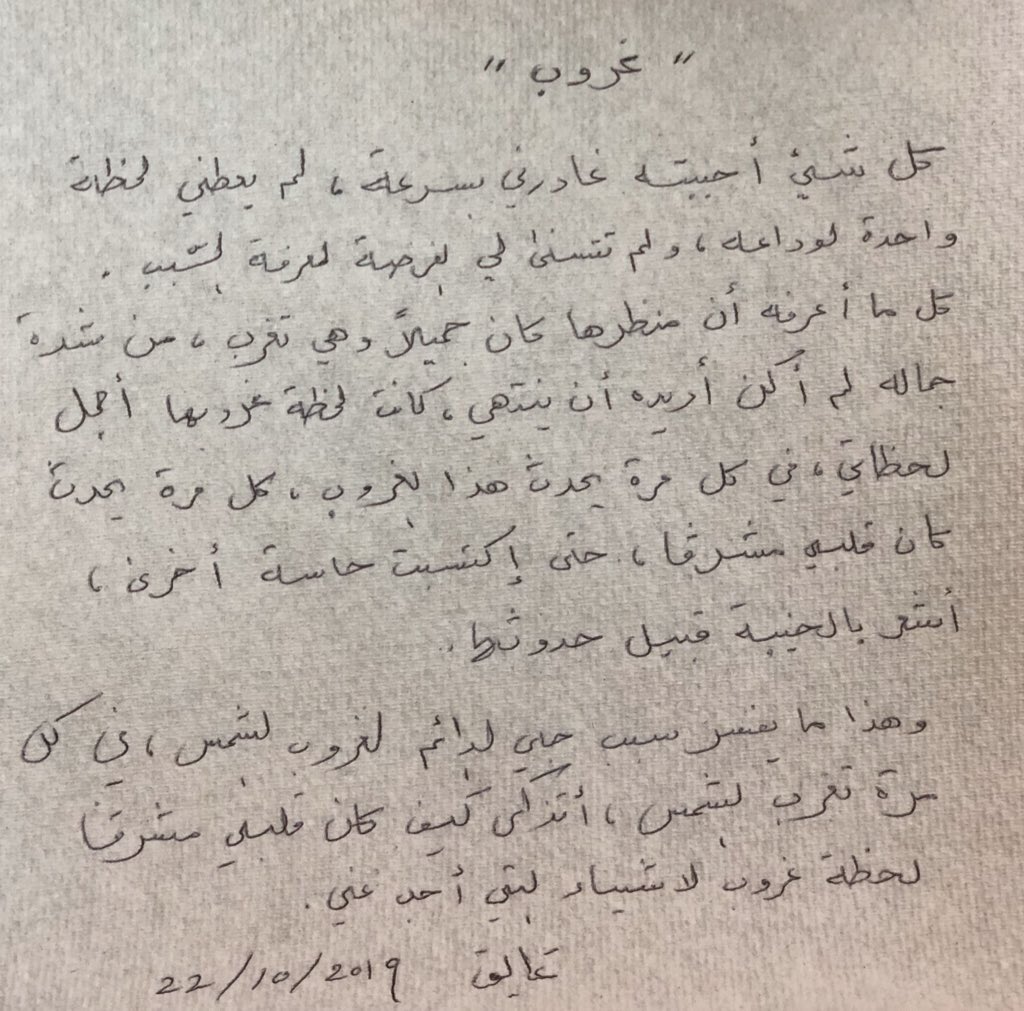 " غروب "
كل شيئ أحببته غادرني بسرعة ، لم يعطني لحظة
واحدة لوداعه ، ولم تتسنى لي الفرصة لمعرفة السّبب .
كل ما أعرفه أن منظرها كان جميلاً وهي تغرب ، من شدة
جماله لم أكن أريده أن ينتهي ، كانت لحظة غروبها أجمل
لحظاتي ، في كل مرة يحدث هذا الغروب ، كل مرة يحدث
كان قلبي مشرقا ، حتى إكتسبت حاسة أخرى ،
أشعر بالخيبة قبيل حدوثها .
وهذا ما يفسر سبب حبي الدائم لغروب الشمس ، في كل
مرة تغرب الشمس ، أتذكر كيف كان قلبي مشرقا
لحظة غروب لاشياء التي أحب عني .
22/10/2019